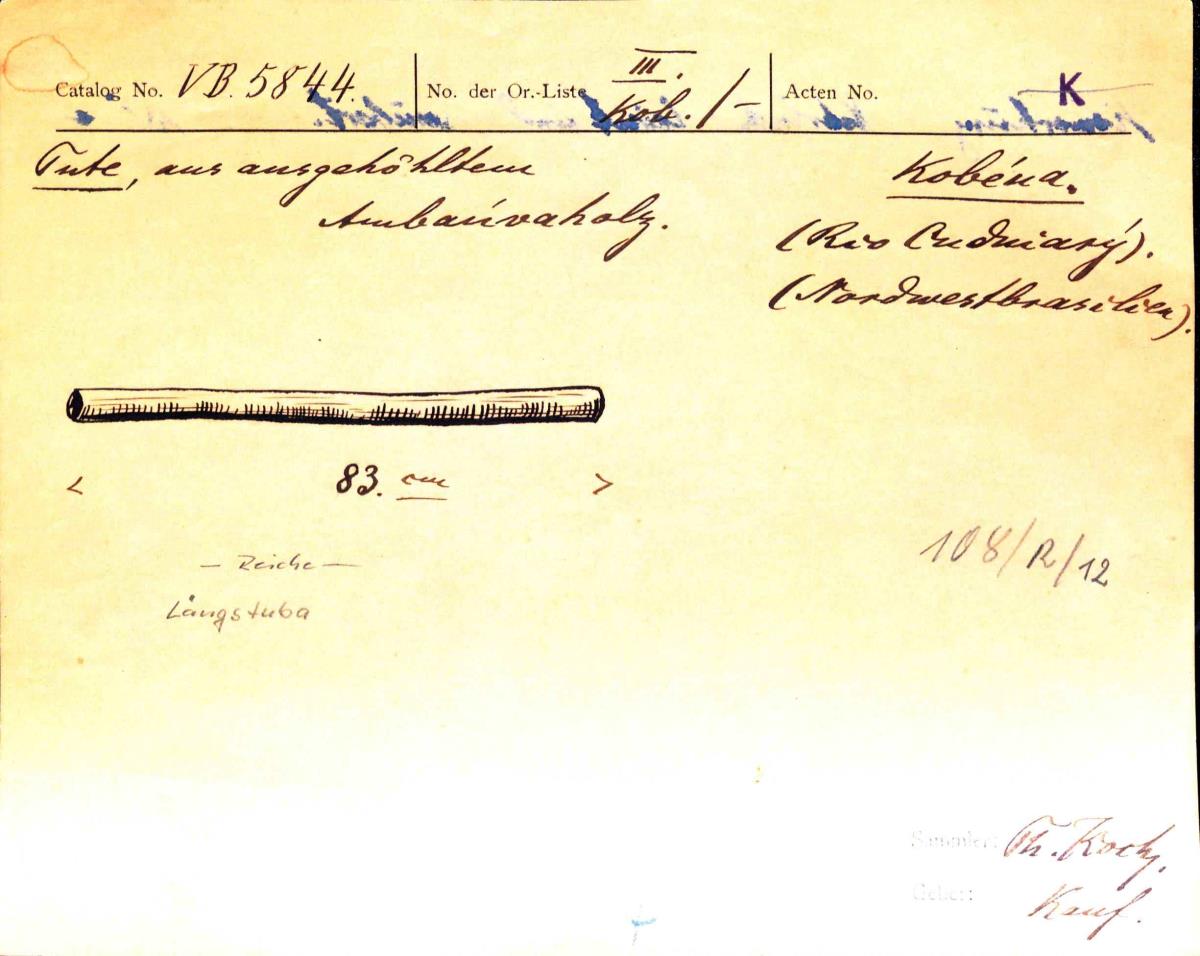 Catalog No. VB. 5844. No. der Or.-Liste III. Kob. /- Acten No. K
Tute, aus ausgehöhltem
Ambaúvaholz.
Kobéua.
(Rio Cuduiarý).
(Nordwestbrasilien).
83. cm
108/R/12
Längstuba
Sammler: Th. Koch,
Geber: Kauf.